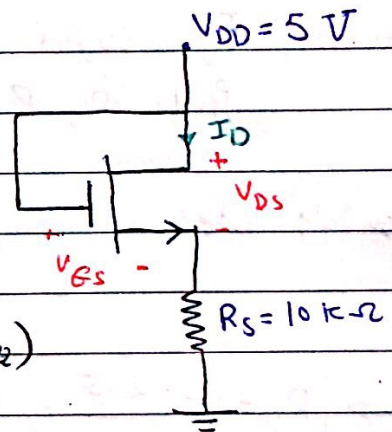 V_DD = 5 V
I_D
+
V_DS
+ -
V_GS -
R_S = 10 kΩ
2)